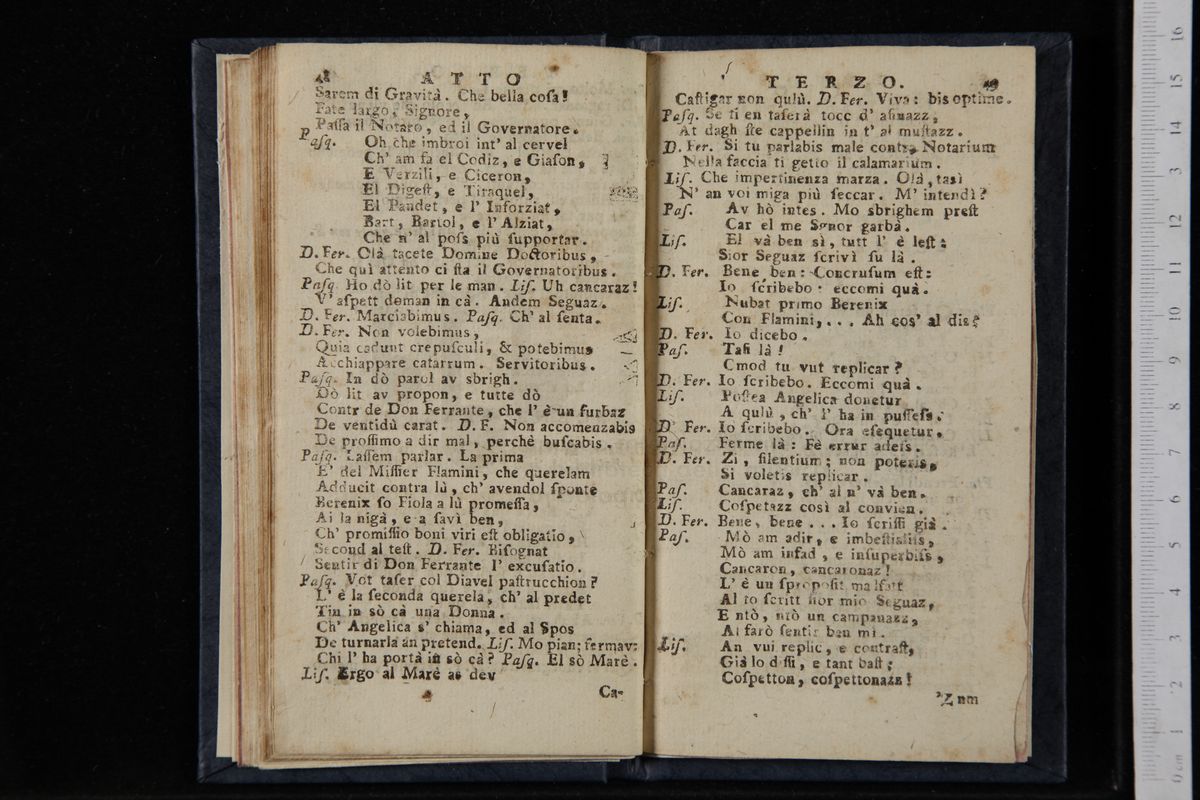 48 ATTO
Sarem di Gravità. Che bella coſa!
Fate largo, Signore,
Paſſa il Notaro, ed il Governatore.
Paſq. Oh che imbroi int' al cervel
Ch' am fa el Codiz, e Giaſon,
E Verzili, e Ciceron,
El Digeſt, e Tiraquel,
El Pandet, e l' Inforziat,
Bart, Bartol, e l' Alziat,
Che n' al poſs più ſupportar.
D. Fer. Olà tacete Domine Doctoribus,
Che quì attento ci ſta il Governatoribus.
Paſq. Ho dò lit per le man. Liſ. Uh cancaraz!
V' aſpett doman in cà. Andem Seguaz.
D. Fer. Marciabimus. Paſq. Ch' al ſenta.
D. Fer. Non volebimus,
Quia cadunt crepuſculi, & potebimus
Acchiappare catarrum. Servitoribus.
Paſq. In dò parol av sbrigh.
Dò lit av propon, e tutte dò
Contr de Don Ferrante, che l' è un furbaz
De ventidù carat. D. F. Non accomenzabis
De proſſimo a dir mal, perchè buſcabis.
Paſq. Laſſem parlar. La prima
E' del Miſſier Flamini, che querelam
Adducit contra lù, ch' avendol ſponte
Berenix ſo Fiola a lù promeſſa,
Ai la nigà, e a ſavì ben,
Ch' promiſſio boni viri eſt obligatio,
Second al teſt. D. Fer. Biſognat
Sentir di Don Ferrante l' excuſatio.
Paſq. Vot taſer col Diavel paſtrucchion?
L' è la ſeconda querela, ch' al predet
Tin in sò cà una Donna.
Ch' Angelica s' chiama, ed al Spos
De turnarla an pretend. Liſ. Mo pian; fermav:
Chi l' ha portà in sò cà? Paſq. El sò Marè.
Liſ. Ergo al Marè as dev
Ca-
TERZO. 49
Caſtigar non qulù. D. Fer. Viva: bis optime.
Paſq. Se ti en taſerà tocc d' aſinazz,
At dagh ſte cappellin in t' al muſtazz.
D. Fer. Si tu parlabis male contra Notarium
Nella faccia ti getto il calamarium.
Liſ. Che impertinenza marza. Olà, tasì
N' an voi miga più ſeccar. M' intendì?
Paſ. Av hò intes. Mo sbrighem preſt
Car el me Sgnor garbà.
Liſ. El và ben sì, tutt l' è leſt:
Sior Seguaz ſcrivì ſu là.
D. Fer. Bene ben: Concruſum eſt:
Io ſcribebo: eccomi quà.
Liſ. Nubat primo Berenix
Con Flamini,... Ah cos' al dis?
D. Fer. Io dicebo.
Paſ. Taſi là!
Cmod tu vut replicar?
D. Fer. Io ſcribebo. Eccomi quà.
Liſ. Poſtea Angelica donetur
A qulù, ch' l' ha in puſſeſs.
D. Fer. Io ſcribebo. Ora eſequetur.
Paſ. Ferme là: Fè errur adeſs.
D. Fer. Zi, ſilentium; non poteris,
Si voletis replicar.
Paſ. Cancaraz, ch' al n' và ben.
Liſ. Coſpetazz così al convien.
D. Fer. Bene, bene... Io ſcriſſi già.
Paſ. Mò am adir, e imbeſtialiſs,
Mò am inſad, e inſuperbiſs,
Cancaron, cancaronaz!
L' è un ſpropoſit malfatt
Al to ſcritt ſior mio Seguaz,
E ntò, ntò un campanazz,
Ai farò ſentir ben mì.
Liſ. An vui replic, e contraſt,
Già lo diſſi, e tant baſt;
Coſpetton, coſpettonazz!
Znm